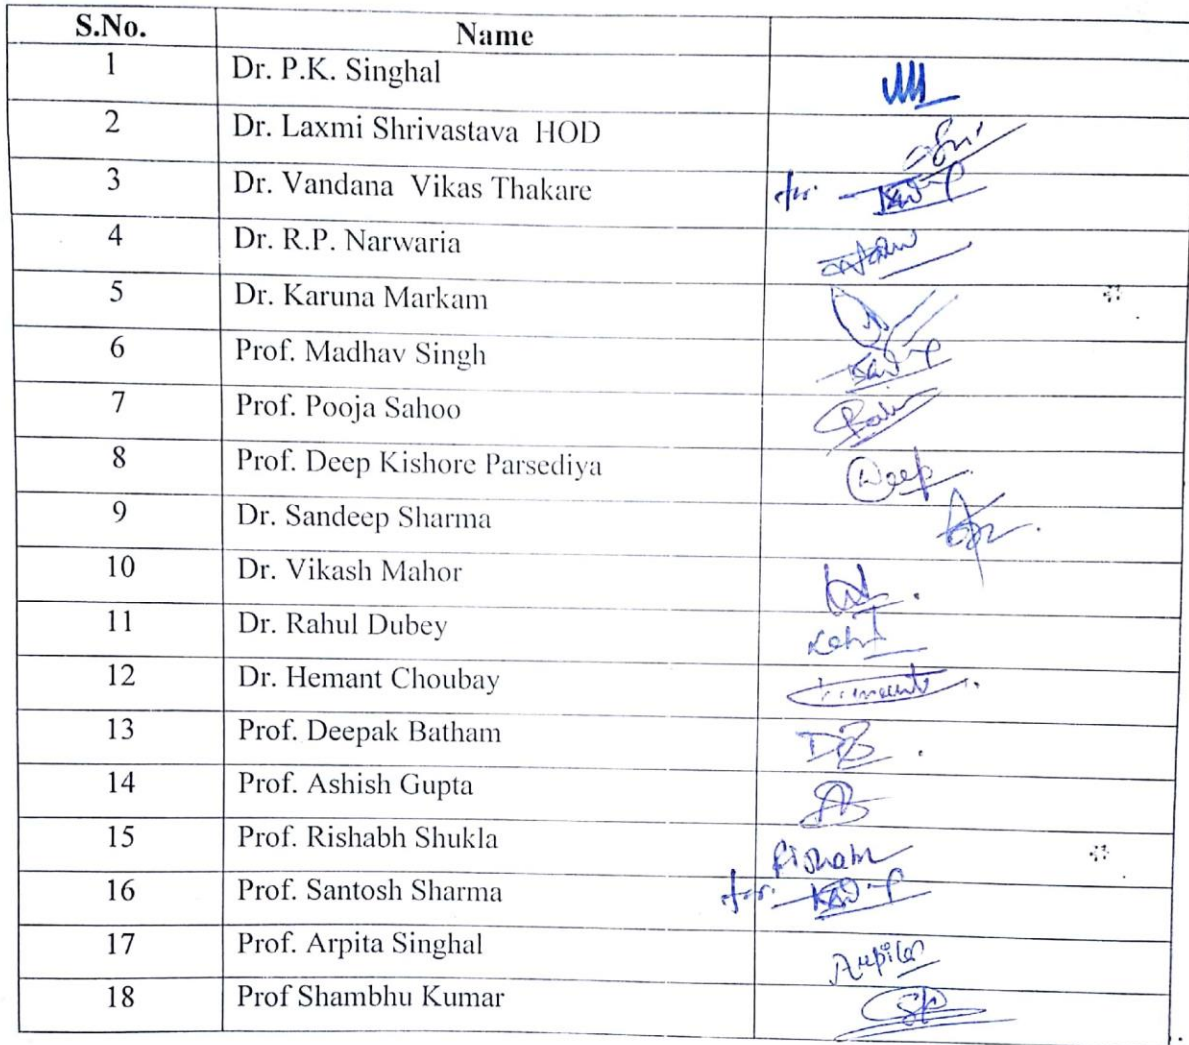 S.No. Name
1 Dr. P.K. Singhal
2 Dr. Laxmi Shrivastava HOD
3 Dr. Vandana Vikas Thakare for.
4 Dr. R.P. Narwaria
5 Dr. Karuna Markam
6 Prof. Madhav Singh
7 Prof. Pooja Sahoo
8 Prof. Deep Kishore Parsediya Deep
9 Dr. Sandeep Sharma
10 Dr. Vikash Mahor
11 Dr. Rahul Dubey
12 Dr. Hemant Choubay
13 Prof. Deepak Batham DB
14 Prof. Ashish Gupta
15 Prof. Rishabh Shukla
16 Prof. Santosh Sharma for.
17 Prof. Arpita Singhal Arpita
18 Prof Shambhu Kumar SK